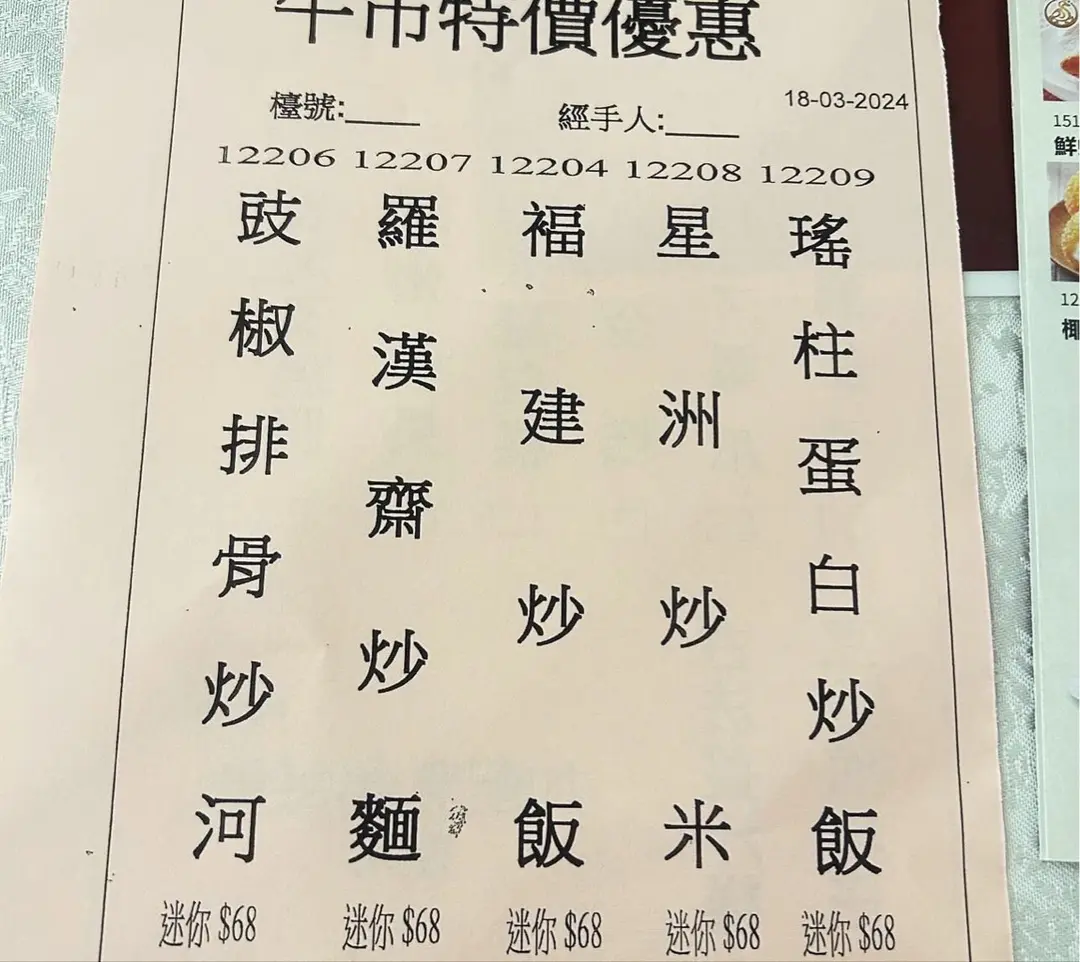 午市特價優惠
檯號:____
經手人:____
18-03-2024
12206 12207 12204 12208 12209
豉椒排骨炒河
羅漢齋炒麵
福建炒飯
星洲炒米
瑤柱蛋白炒飯
迷你 $68 迷你 $68 迷你 $68 迷你 $68 迷你 $68
151
鮮
12
椰